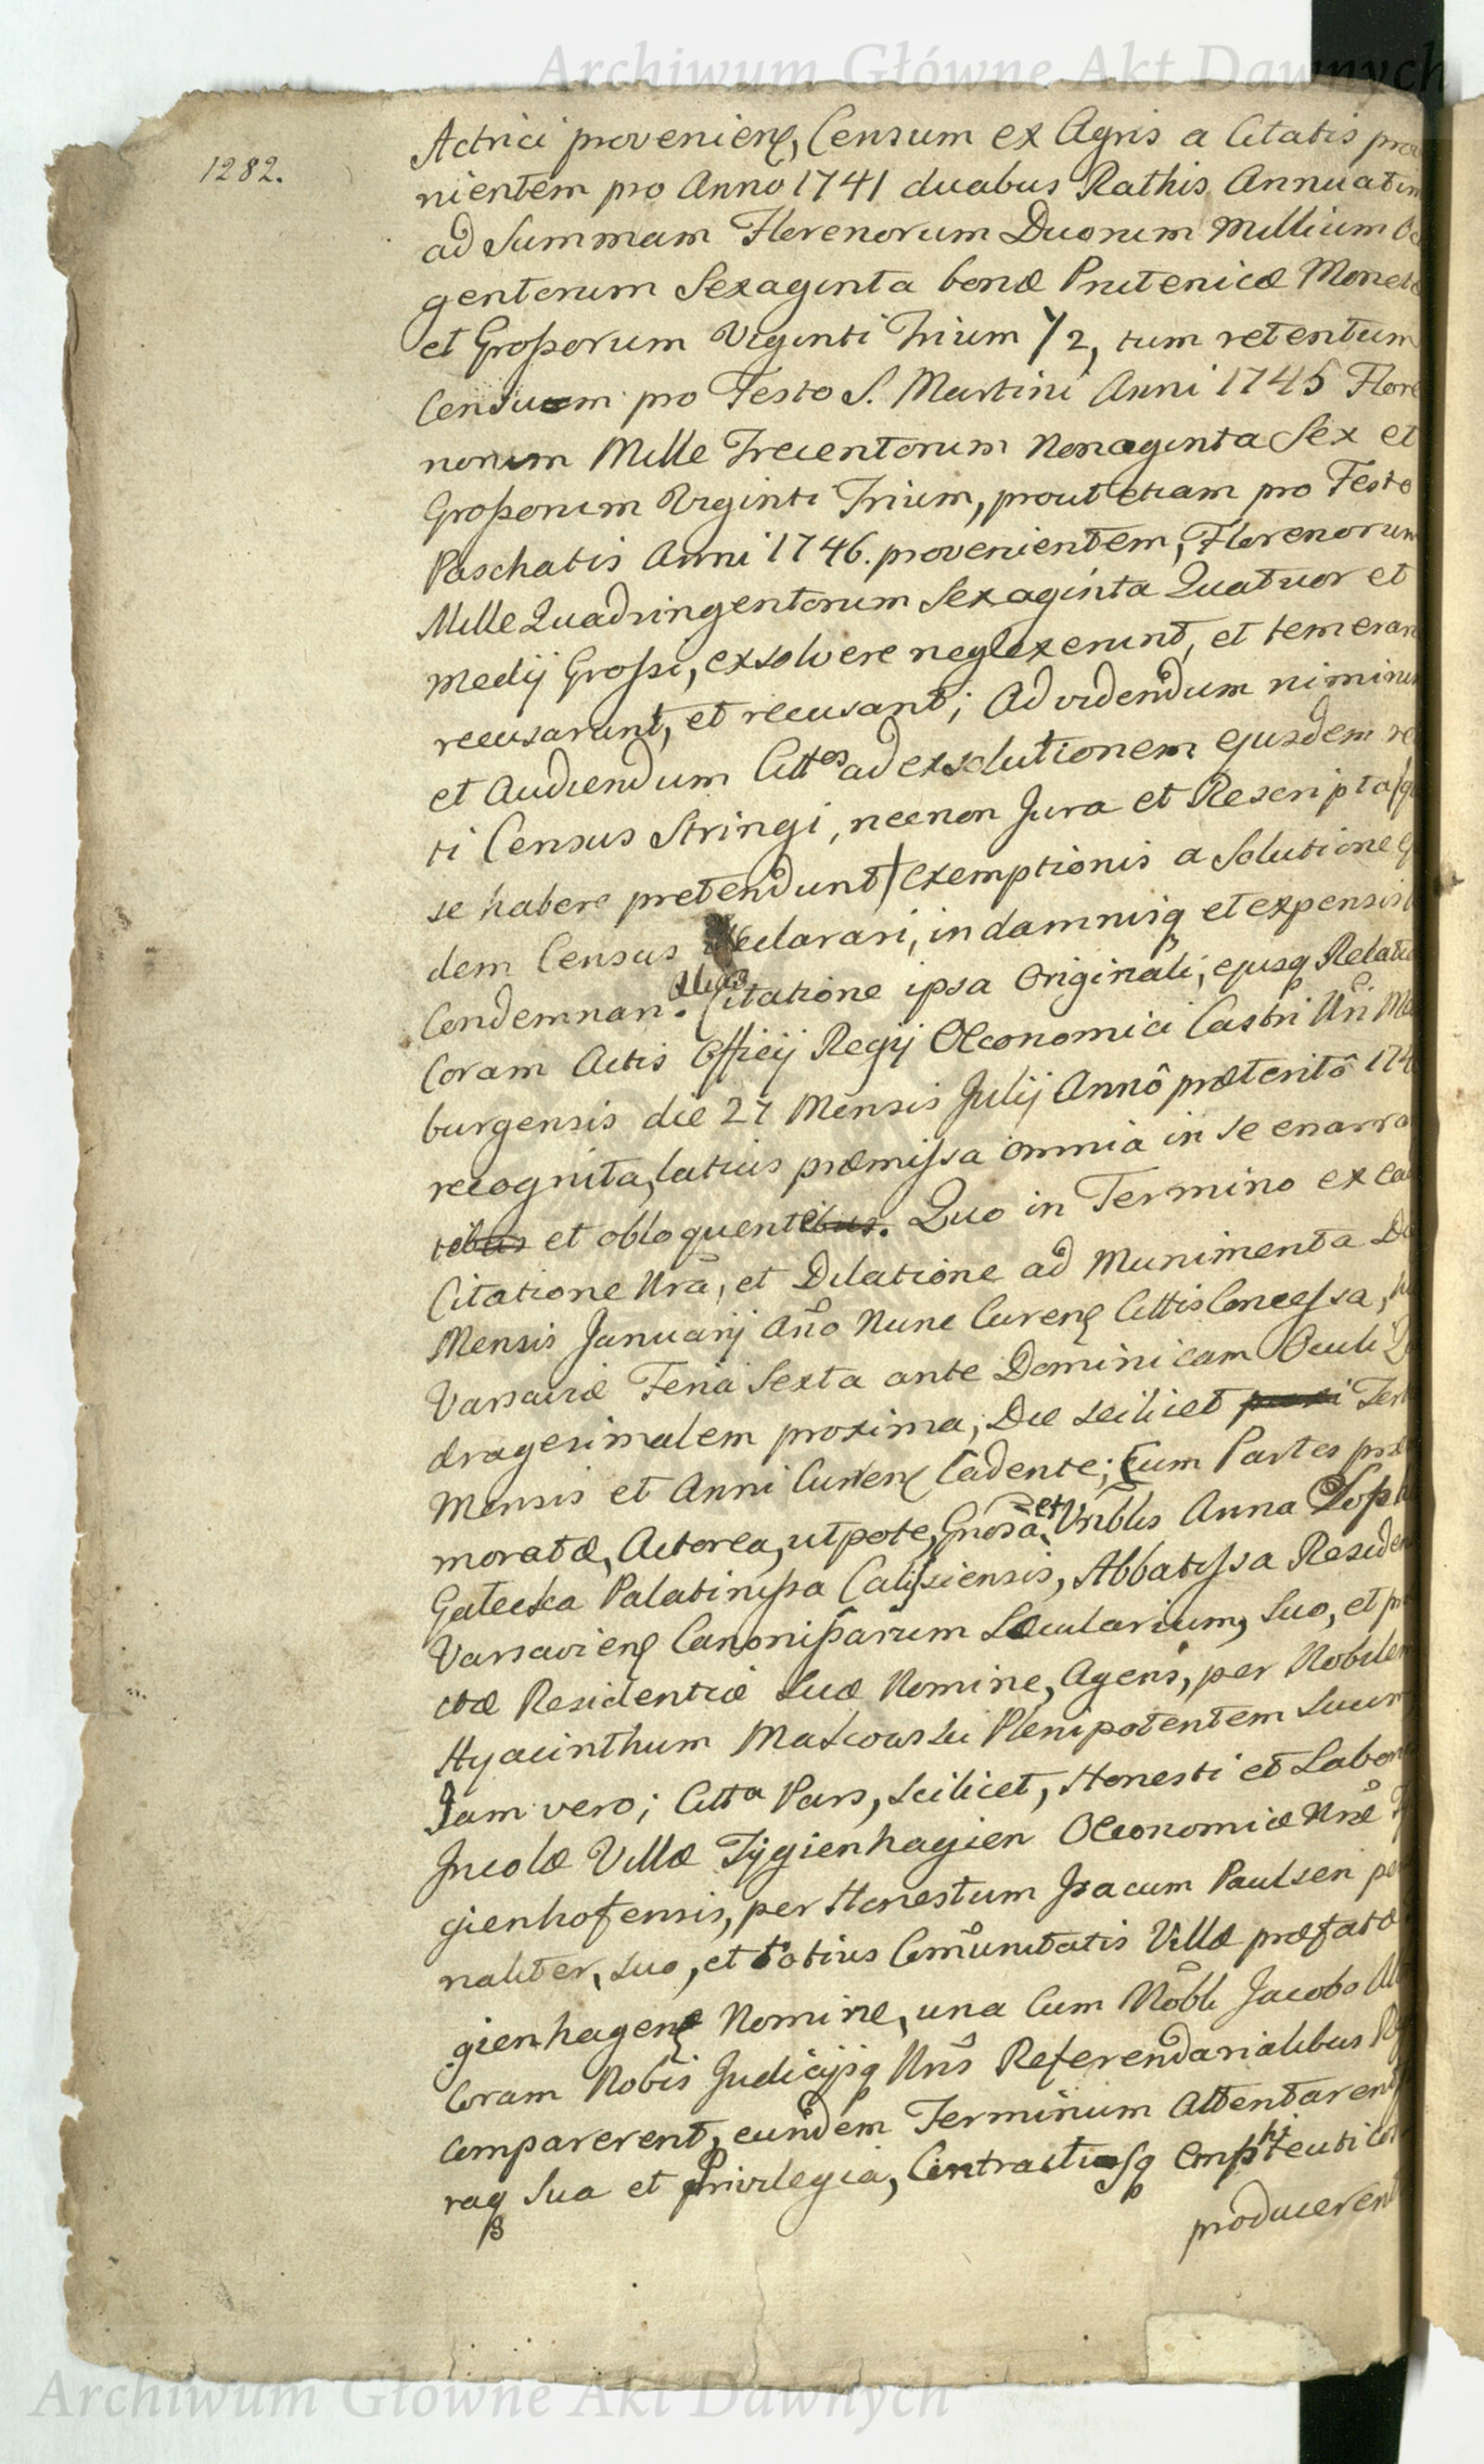 Archiwum Główne Akt Dawnych
1282.
Actrici provenienꝭ, Censum ex Agris a Citatis pro
nientem pro Anno 1741 duabus Rathis Annuatim
ad Summam Florenorum Duorum Millium Oc
gentorum Sexaginta bonæ Prutenicæ Moneta
et Großorum Viginti Trium 1/2, tum retentum
Censuum pro Festo S. Martini Anni 1745 Flore
norum Mille Trecentorum Nonaginta Sex et
Großorum Viginti Trium, prout etiam pro Festo
Paschatis Anni 1746. provenientem, Florenorum
Mille Quadringentorum Sexaginta Quatuor et
medij Großi, exsolvere neglexerunt, et temerari
recusarunt, et recusant; Ad videndum nimirum
et Audiendum Cittos ad exsolutionem ejusdem re
ti Census Stringi, necnon Jura et Rescripta (q
se habere pretendunt) exemptionis a Solutione e
dem Census declarari, in damnisq et expensis
Condemnan. Citatione ipsa Originali, ejusq Relatio
Coram Actis Officij Regij Oeconomici Castri Nri Ma
burgensis die 27 Mensis Julij Annô præteritô 174
recognita, latius præmissa omnia in se enarra
tibus et obloquentibus. Quo in Termino ex ea
Citatione Nrã, et Dilatione ad Munimenta Di
Mensis Januarij Año Nunc Curenꝭ Cittis Concessa, hu
Varsaviæ Feria Sexta ante Dominicam Oculi Q
dragesimalem proxima, Die scilicet Ter
Mensis et Anni Currenꝭ Cadente; Cum Partes præ
moratæ, Actorea, utpote, Gnosa et Mblis Anna Soph
Galecka Palatinißa Calissiensis, Abbatissa Residen
Varsavienꝭ Canonißarum Sæcularium, Suo, et præ
ctæ Residentiæ Suæ Nomine, Agens, per Nobilem
Hyacinthum Makowski Plenipotentem Suum
Jam vero; Citta Pars, Scilicet, Honesti et Labor
Incolæ Villæ Tygienhagien Oeconomiæ Nræ T
gienhofensis, per Honestum Isacum Paulsen per
naliter, suo, et totius Com̃unitatis Villæ præfatæ
gienhagenꝭ Nomine, una Cum Nobli Jacobo
Coram Nobis Judicijsq Nris Referendarialibus
comparerent, eundem Terminum Attentarent
raq Sua et Privilegia, Contractusq Emphiteuti
producerent
Archiwum Główne Akt Dawnych